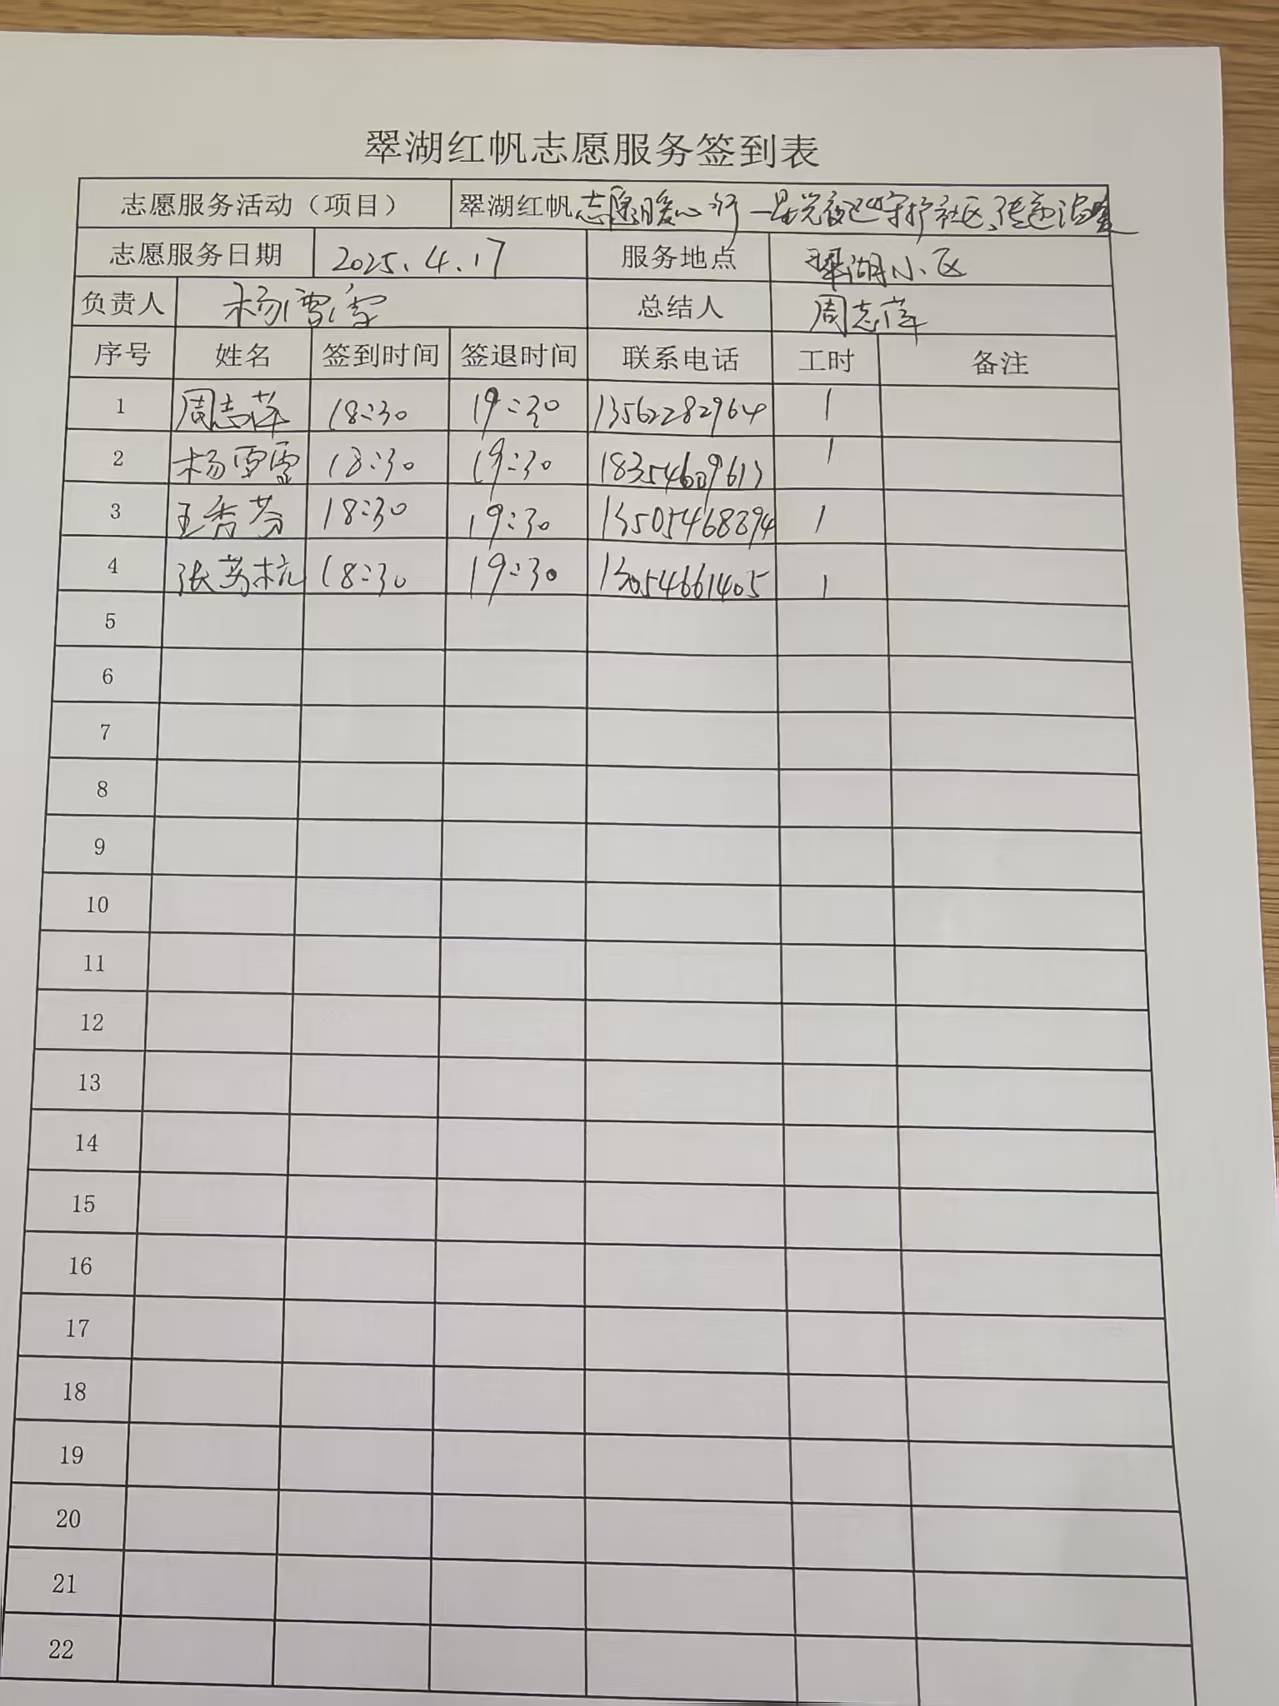 翠湖红帆志愿服务签到表
志愿服务活动（项目） 翠湖红帆志愿暖心行一星光夜巡守护社区
志愿服务日期 2025.4.17 服务地点 翠湖小区
负责人 杨雪 总结人 周志萍
序号 姓名 签到时间 签退时间 联系电话 工时 备注
1 周志萍 18:30 19:30 13562282964 1
2 杨雪雪 18:30 19:30 1
3 王秀芬 18:30 19:30 13505468894 1
4 张 18:30 19:30 13054661405 1
5
6
7
8
9
10
11
12
13
14
15
16
17
18
19
20
21
22